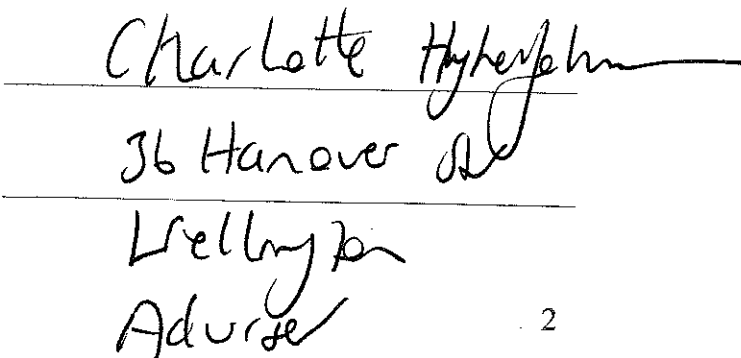 Charlotte
36 Hanover St
Wellington
Adviser
2